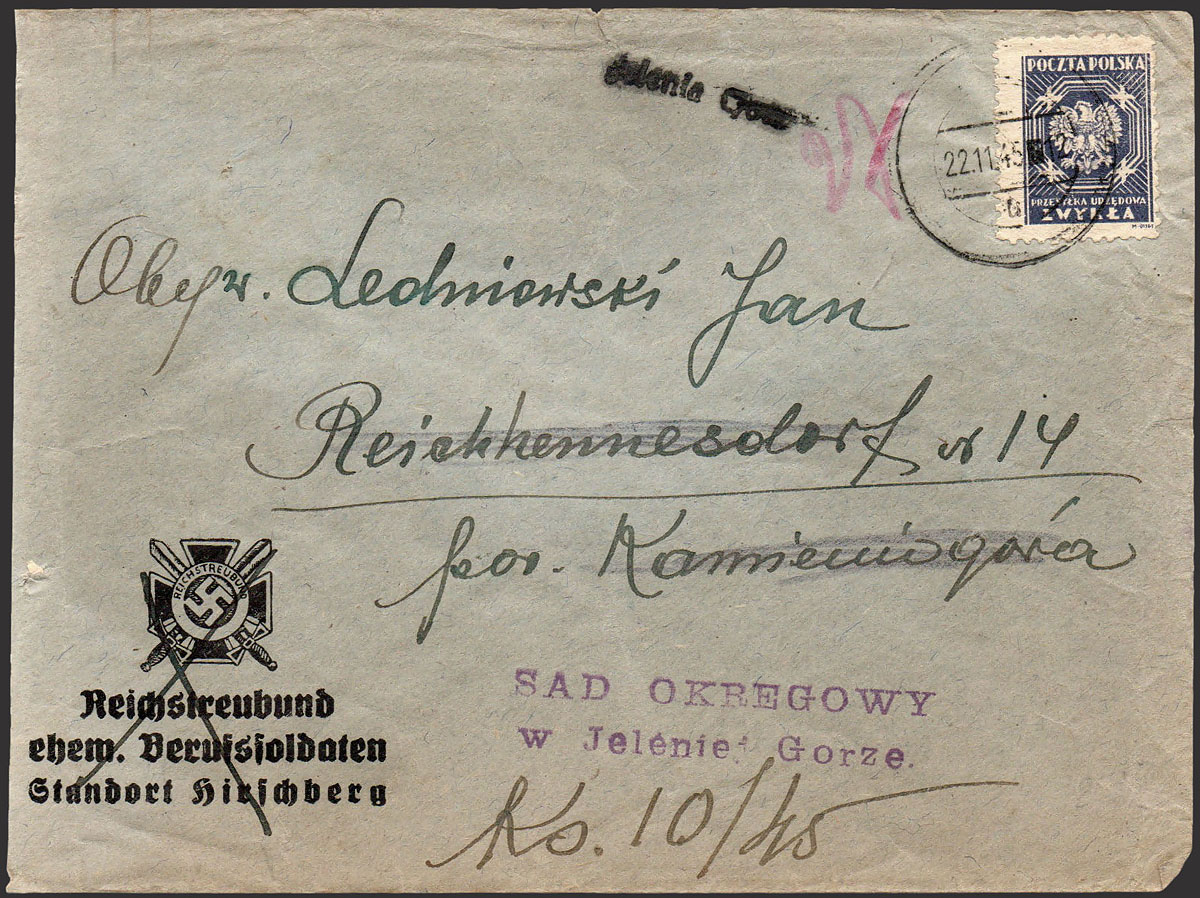 Jelenia Góra
POCZTA POLSKA
22.11.45 12
PRZESYŁKA URZĘDOWA
ZWYKŁA
Obyw. Ledniewski Jan
Reichhennesdorf nr 14
pow. Kamieniogóra
REICHSTREUBUND
Reichstreubund
ehem. Berufssoldaten
Standort Hirschberg
SAD OKREGOWY
w Jeleniej Gorze.
Ko. 10/45